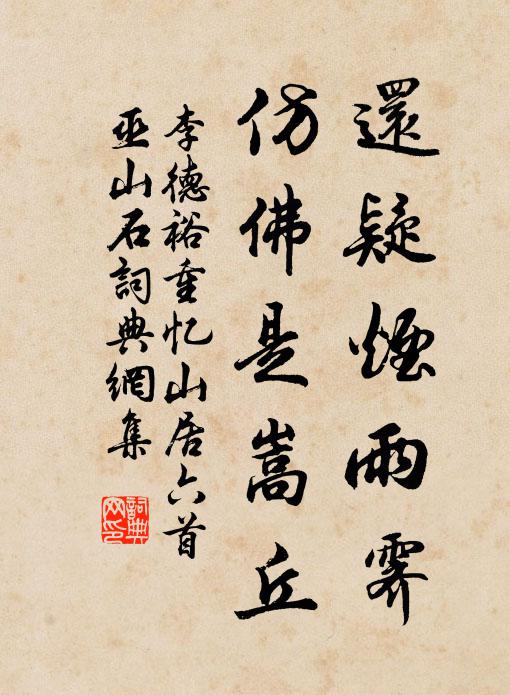 還疑煙雨霽
仿佛是嵩丘
李德裕重忆山居六首
巫山石詞典網集
詞典网印